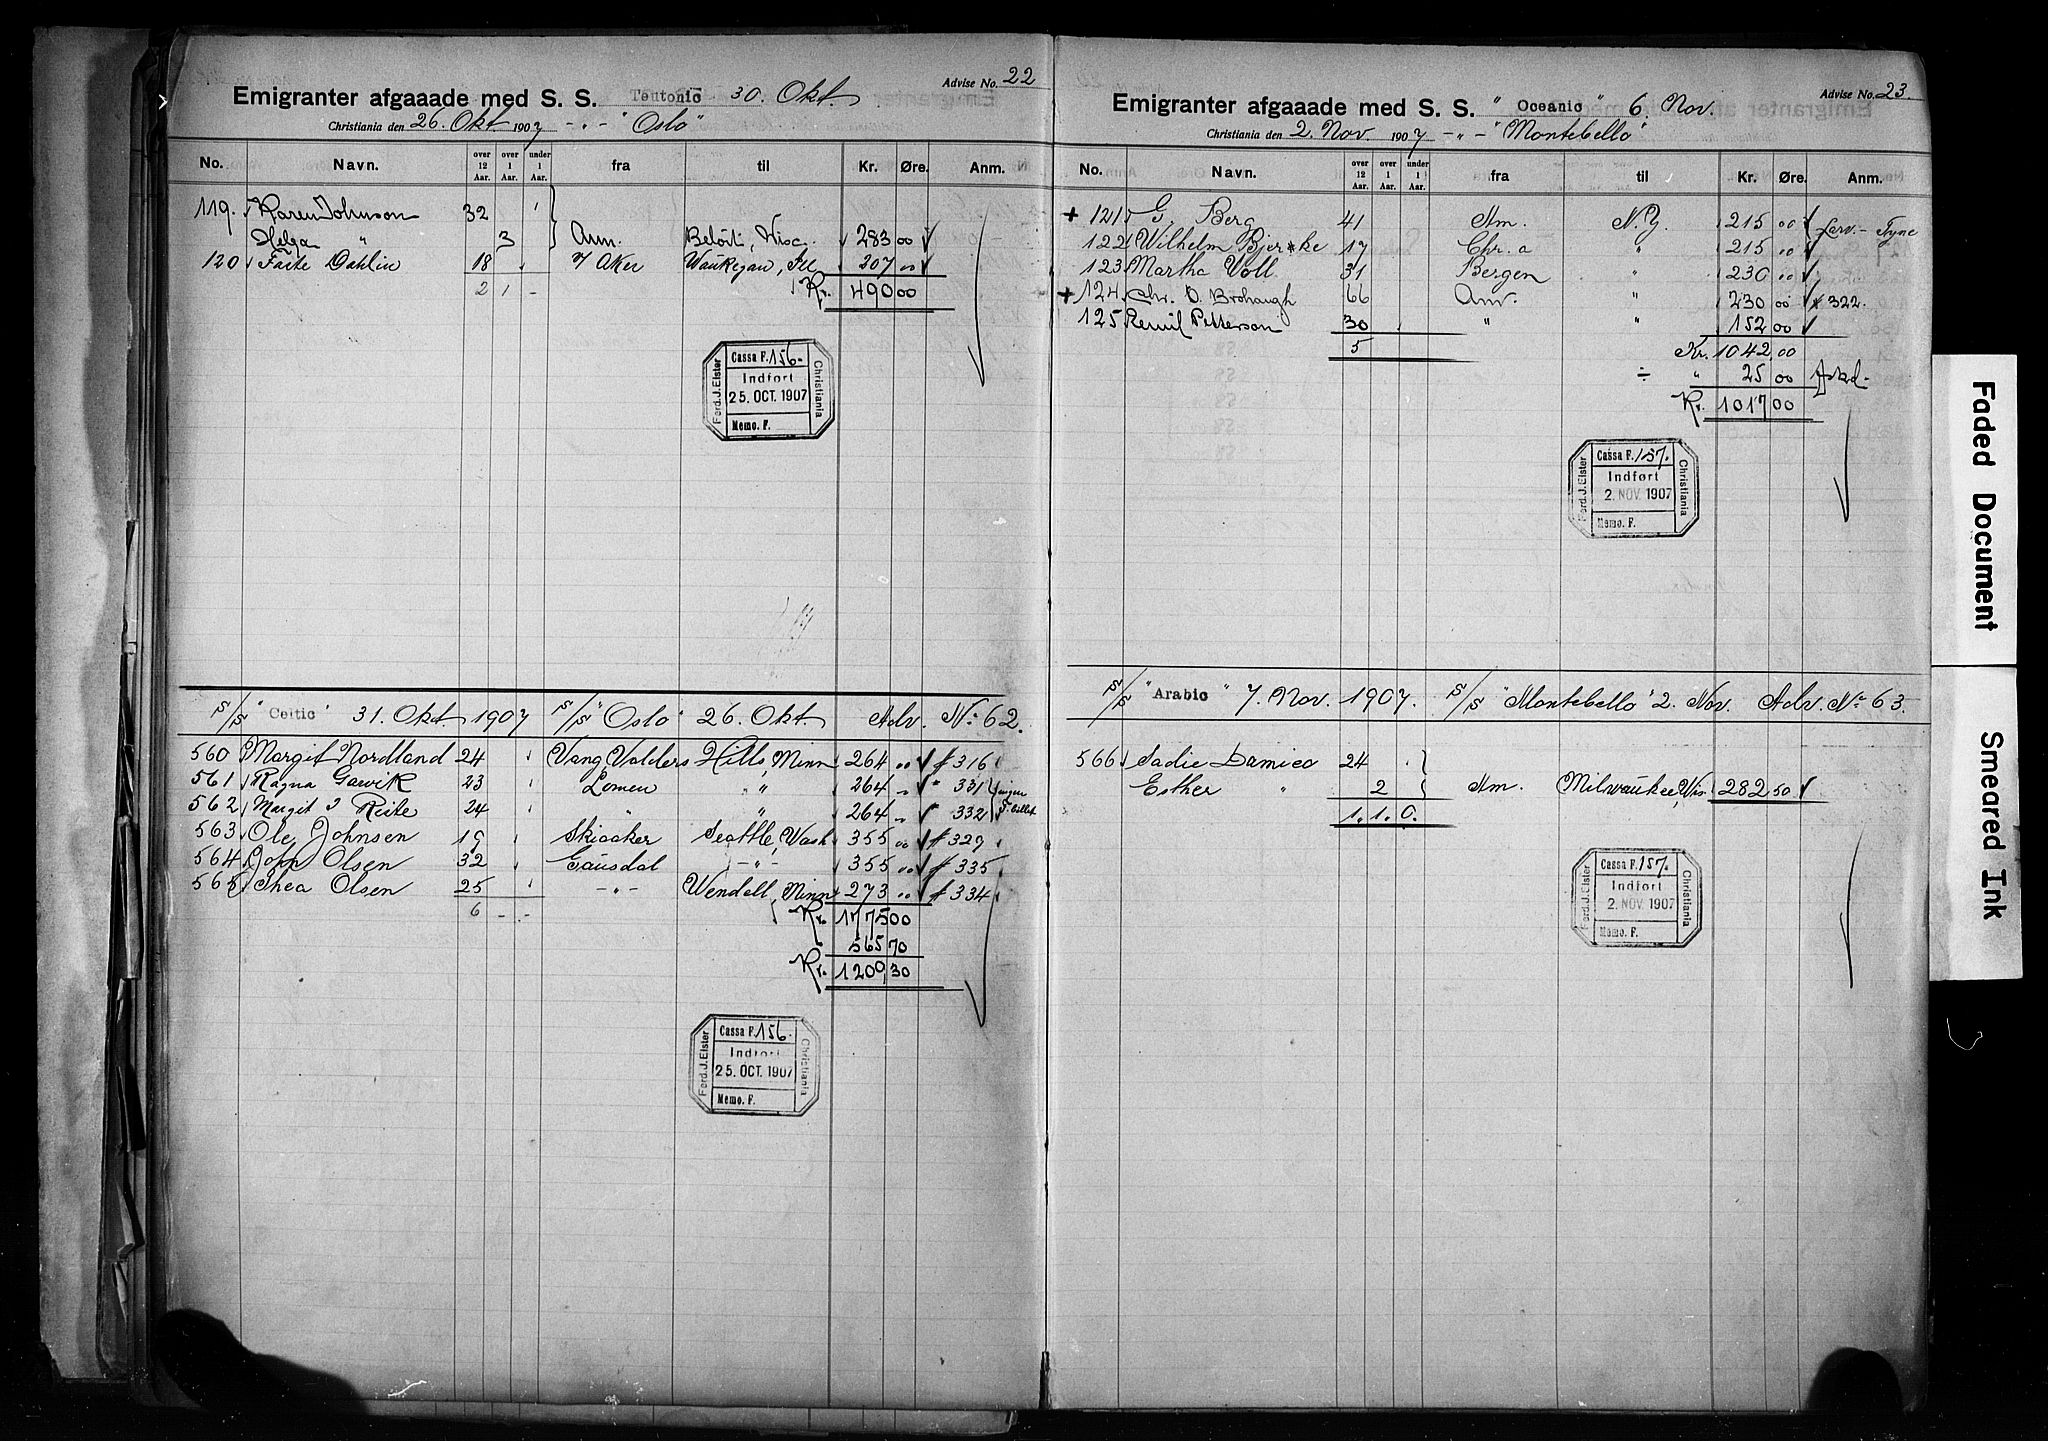 Advise No. 22
Emigranter afgaaade med S. S. Teutonic 30. Okt.
Christiania den 26. Okt 1907 -„- "Oslo"
No. Navn. over 12 Aar. over 1 Aar. under 1 Aar. fra til Kr. Øre. Anm.
119. Karen Johnson 32
Helga " 3 Am. Beloit, Wisc. 283 00
120 Dahlin 18 V Aker Waukegan, Ill 207 „
2 1 - Kr. 490 00
Ferd. J. Elster
Cassa F. 156.
Indført
25. OCT. 1907
Memo. F.
Christiania
S/S "Celtic" 31. Okt 1907 S/S "Oslo" 26. Okt Adv. No 62.
560 Margit Nordland 24 Vang, Valders Hills, Minn 264 „ # 316
561 Ragna 23 Lomen „ 264 „ " 331
562 Margit 24 " 264 „ " 332
563 Ole Johnsen 19 Skiaaker Seattle, Wash 355 „ # 329
564 John Olsen 32 Gausdal -„- 355 „ # 335
565 Thea Olsen 25 -„- Wendell, Minn 273 „ # 334
6 - - Kr. 1775 00
565 70
Kr. 1209,30
Ferd. J. Elster
Cassa F. 156.
Indført
25. OCT. 1907
Memo. F.
Christiania
Advise No. 23.
Emigranter afgaaade med S. S. "Oceanic" 6. Nov.
Christiania den 2. Nov 1907 -„- "Montebello"
No. Navn. over 12 Aar. over 1 Aar. under 1 Aar. fra til Kr. Øre. Anm.
+ 121 G. Berg 41 Am. N.Y. 215 00
122 Wilhelm Bjerke 17 Chr.a " 215 00
123 Martha Voll 31 Bergen " 230 „
+ 124. Chr. O. Brohaugh 66 Am. " 230 00 # 322.
125 Petterson 30 " " 152 00
5 Kr. 1042,00
÷ " 25 00
Kr. 1017 00
Ferd. J. Elster
Cassa F. 157.
Indført
2. NOV. 1907
Memo. F.
Christiania
S/S "Arabic" 7. Nov. 1907. S/S "Montebello" 2. Nov. Adv. No 63.
566 Sadie Damico 24
Esther " 2 Am. Milwaukee, Wis. 282 50
1. 1. 0.
Ferd. J. Elster
Cassa F. 157.
Indført
2. NOV. 1907
Memo. F.
Christiania
Faded Document
Smeared Ink